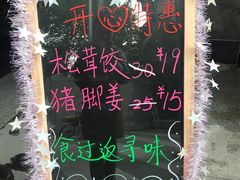 开心特惠
松茸饺 30 ¥19
猪脚姜 25 ¥15
食过返寻味